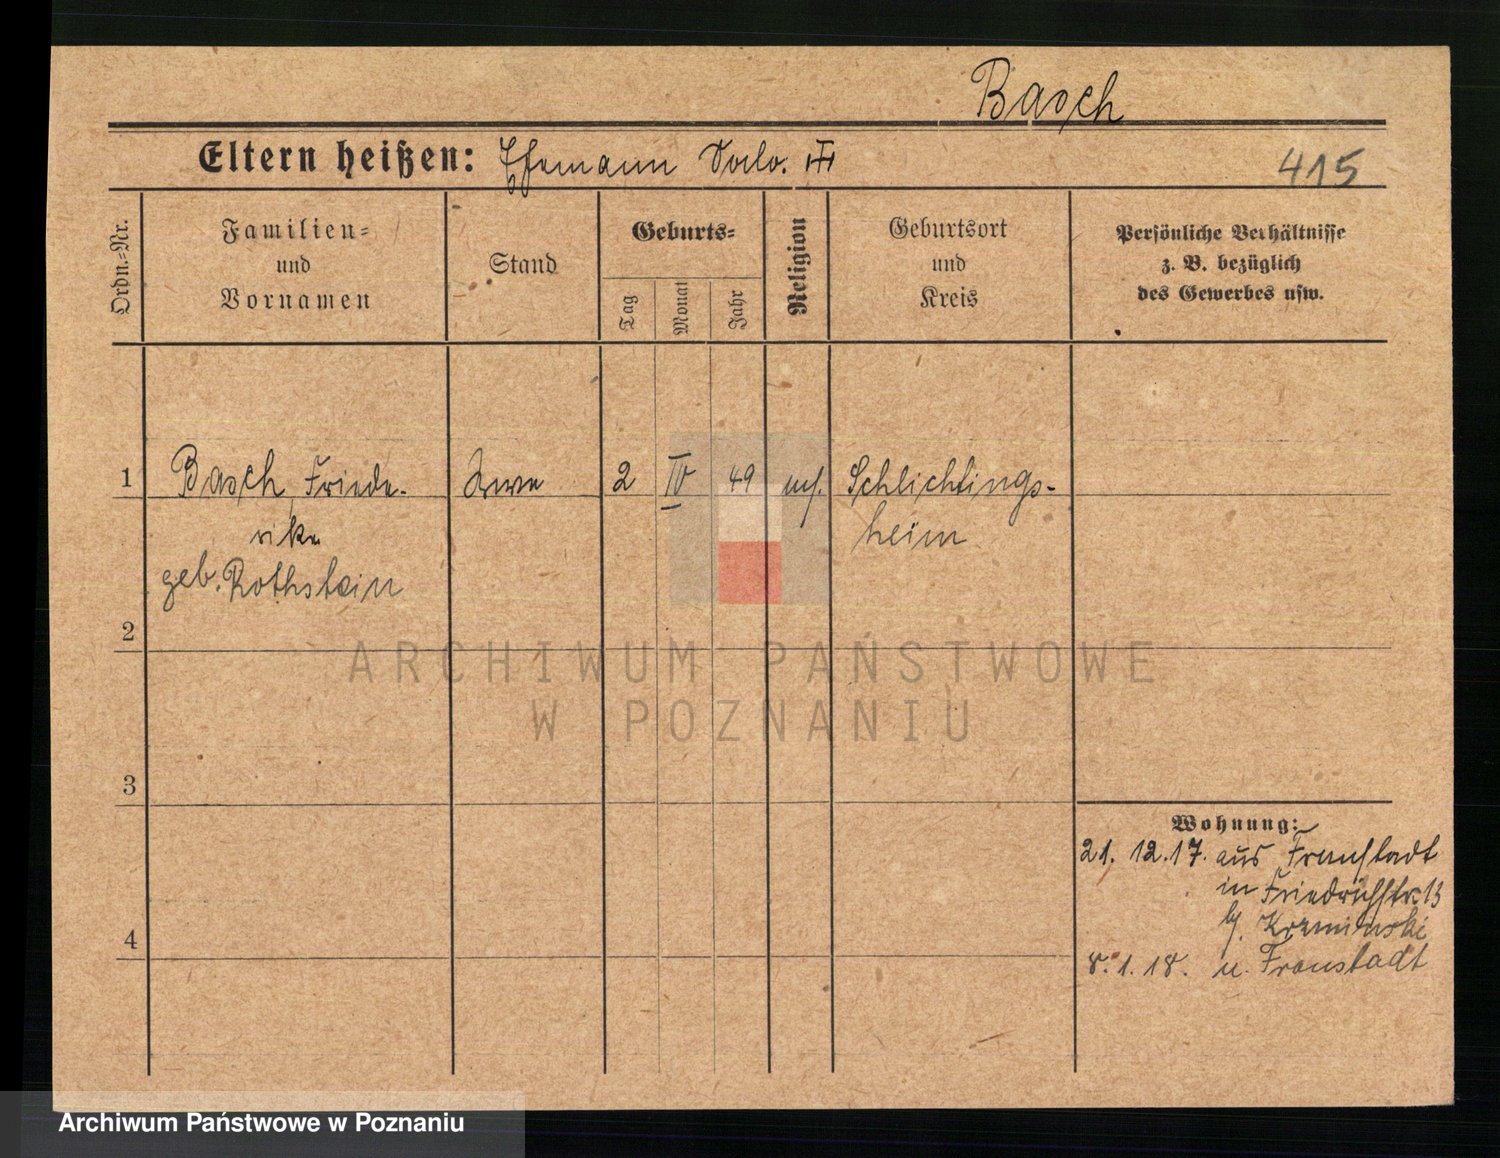 Basch
Eltern heißen: Ehemann Salo.
415
Ordn.-Nr.
Familien-
und
Vornamen
Stand
Geburts-
Tag
Monat
Jahr
Religion
Geburtsort
und
Kreis
Persönliche Verhältnisse
z. B. bezüglich
des Gewerbes usw.
1 Basch Friede- Wwe 2 IV 49 mos. Schlichtings-
rike heim
geb. Rothstein
2
3
4
Wohnung:
21. 12.17. aus Fraustadt
in Friedrichstr. 13
b/. Krzminski
8. 1. 18. n. Fraustadt
ARCHIWUM PAŃSTWOWE
W POZNANIU
Archiwum Państwowe w Poznaniu